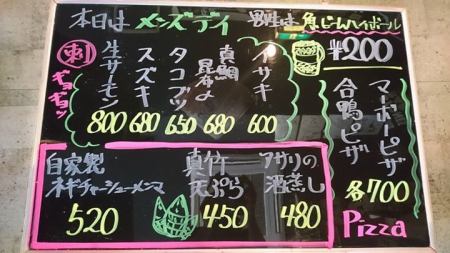 本日は メンズデイ 男生は 角ジームハイボール
¥200
刺
ギョギョッ
イサキ 600
真鯛昆布〆 680
タコブツ 650
スズキ 680
生サーモン 800
マーボーピザ
合鴨ピザ
各700
Pizza
アサリの酒蒸し 480
真竹天ぷら 450
自家製ネギチャーシューメンマ 520